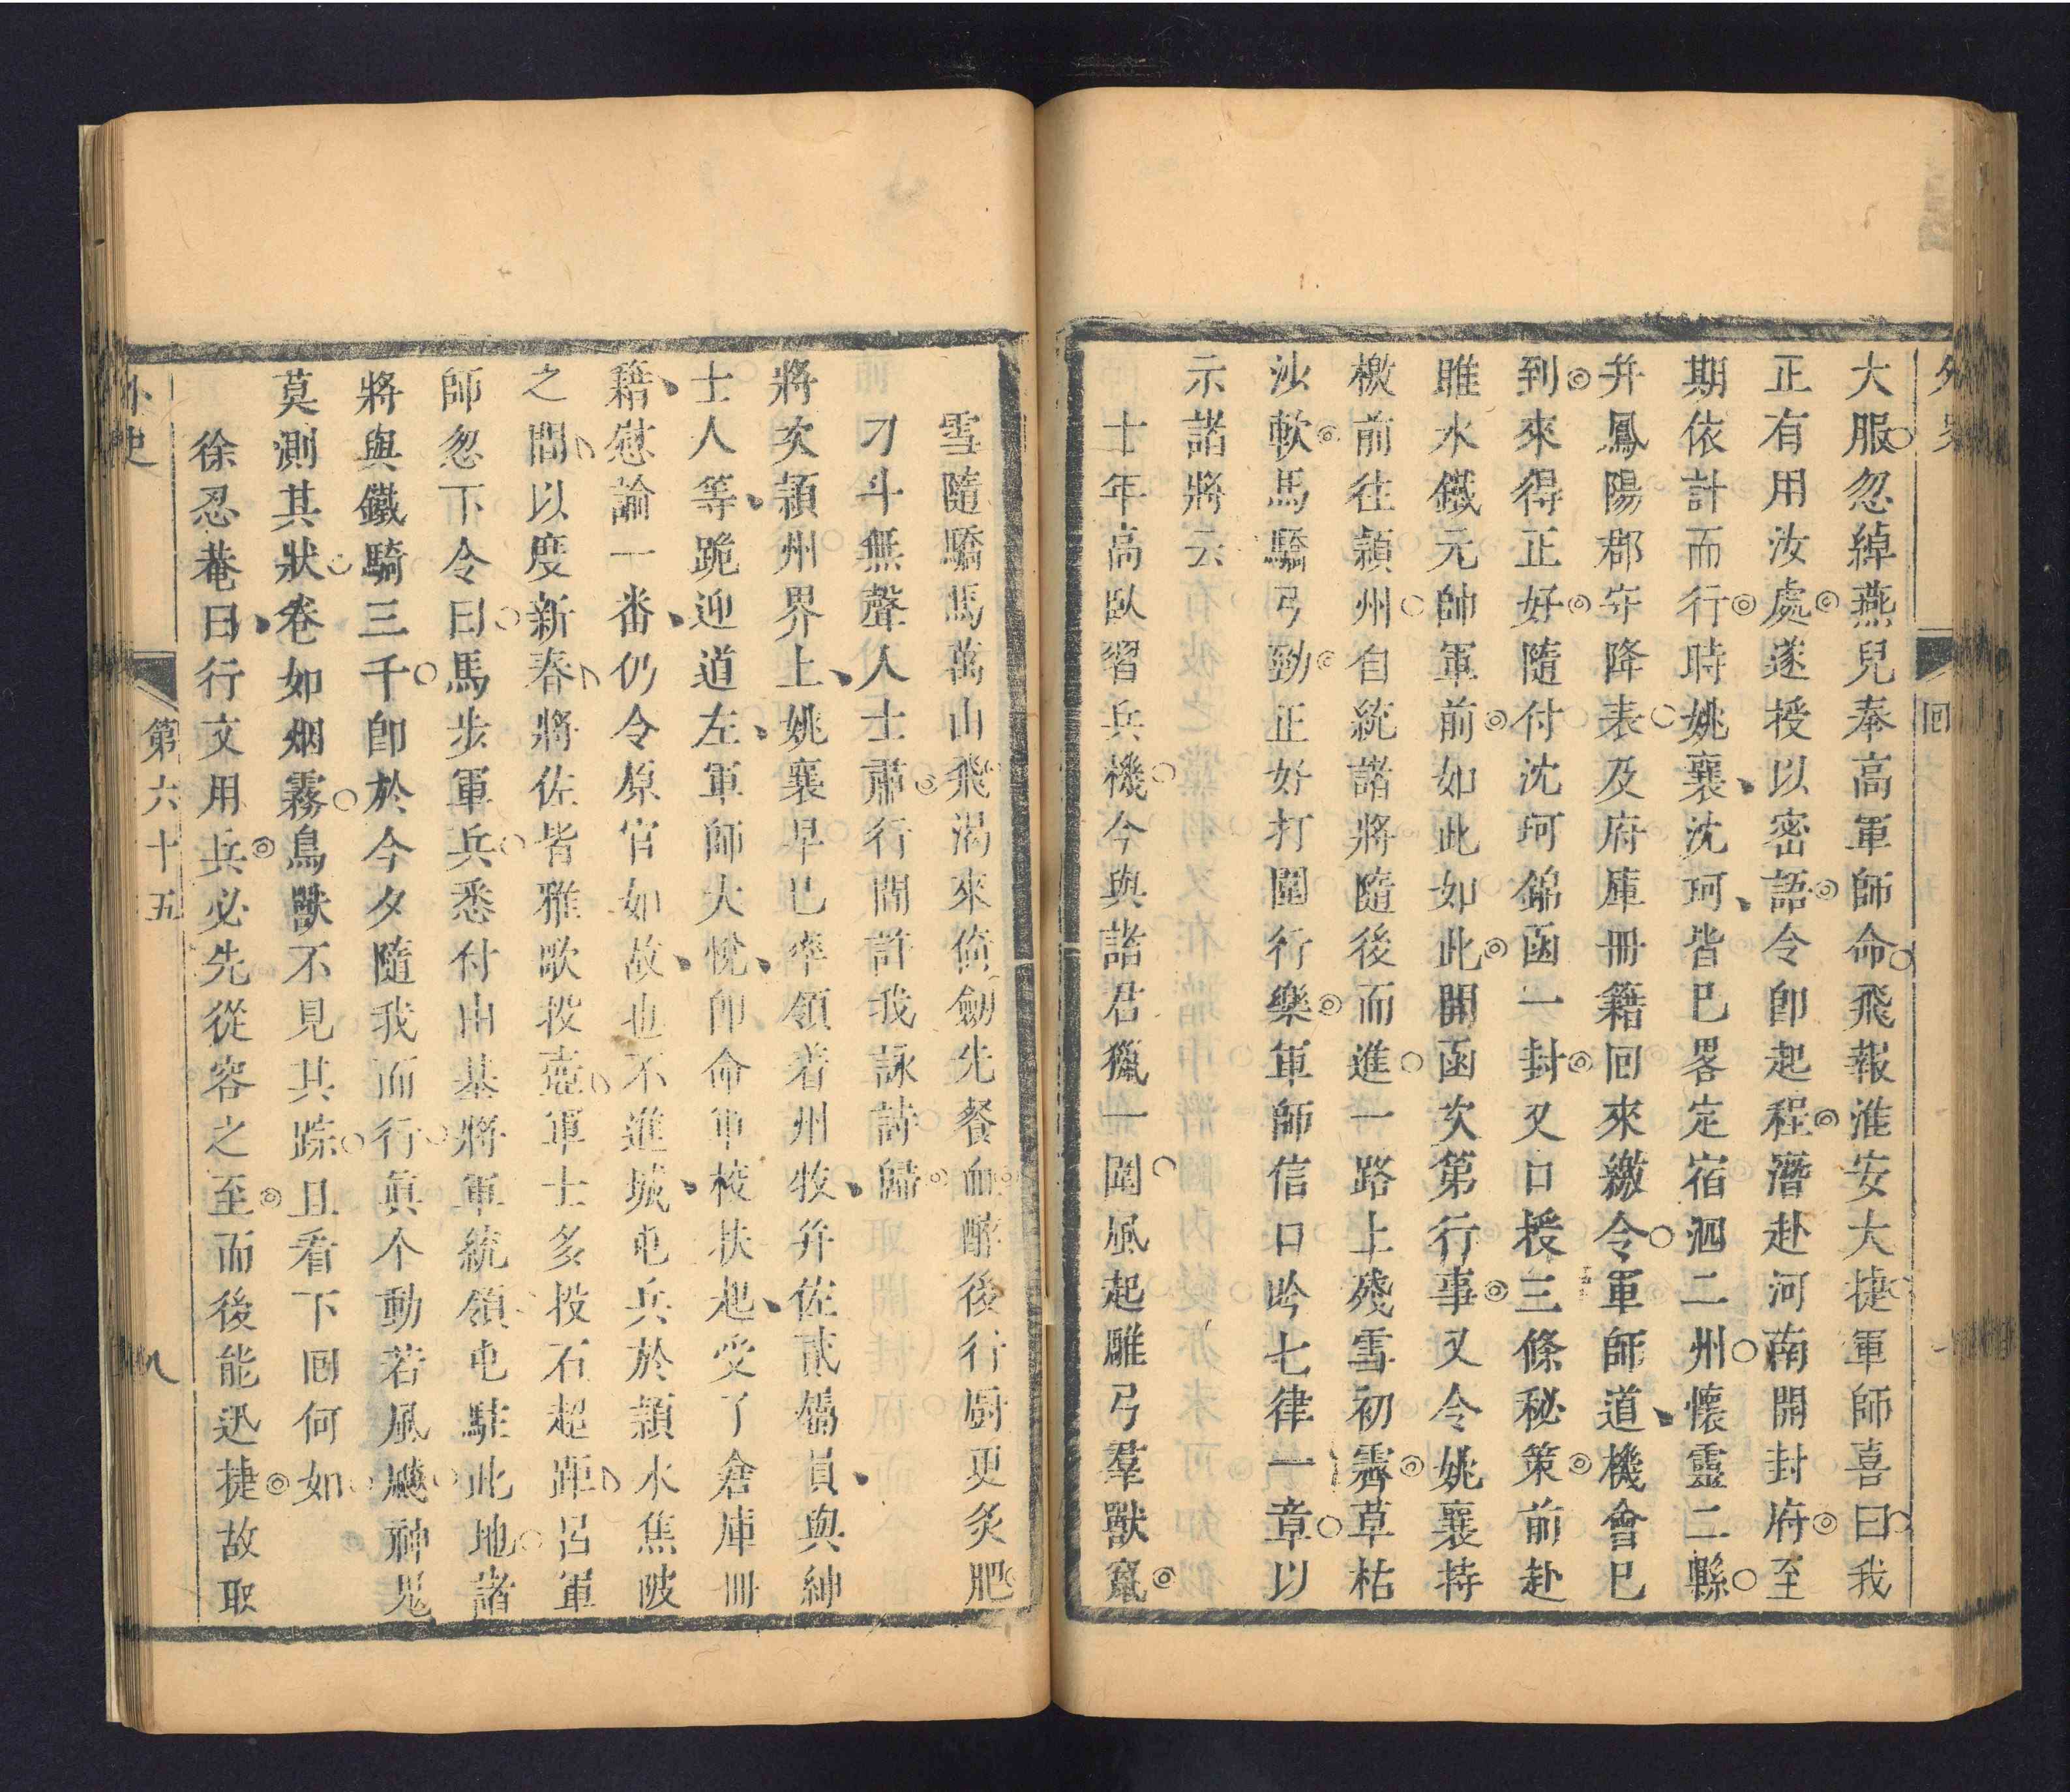 大服忽綽燕兒奉高軍師命飛報淮安大捷軍師喜曰我
正有用汝處遂授以密語令卽起程潛赴河南開封府至
期依計而行時姚襄沈珂皆已畧定宿泗二州懷靈二縣
幷鳳陽郡守降表及府庫冊籍回來繳令軍師道機會已
到來得正好隨付沈珂錦函一封又口授三條秘策前赴
雎水鐵元帥軍前如此如此開函次第行事又令姚襄持
檄前往潁州自統諸將隨後而進一路上殘雪初霽草枯
沙軟馬驕弓勁正好打圍行樂軍師信口吟七律一章以
示諸將云
十年高臥習兵機今與諸君獵一圍風起雕弓羣獸竄
雪隨驕馬萬山飛渴來倚劒先餐血醉後行廚更炙肥
刁斗無聲人士肅行間許我詠詩歸
將次潁州界上姚襄早已率領着州牧幷佐貳僞員與紳
士人等跪迎道左軍師大悅卽命軍校扶起受了倉庫冊
籍慰諭一番仍令原官如故也不進城屯兵於潁水焦陂
之間以度新春將佐皆雅歌投壺軍士多投石超距呂軍
師忽下令曰馬步軍兵悉付由基將軍統領屯駐此地諸
將與鐵騎三千卽於今夕隨我而行眞个動若風飈神鬼
莫測其狀卷如烟霧鳥獸不見其踪且看下回何如
徐忍菴曰行文用兵必先從容之至而後能迅捷故取
外史
第六十五
八